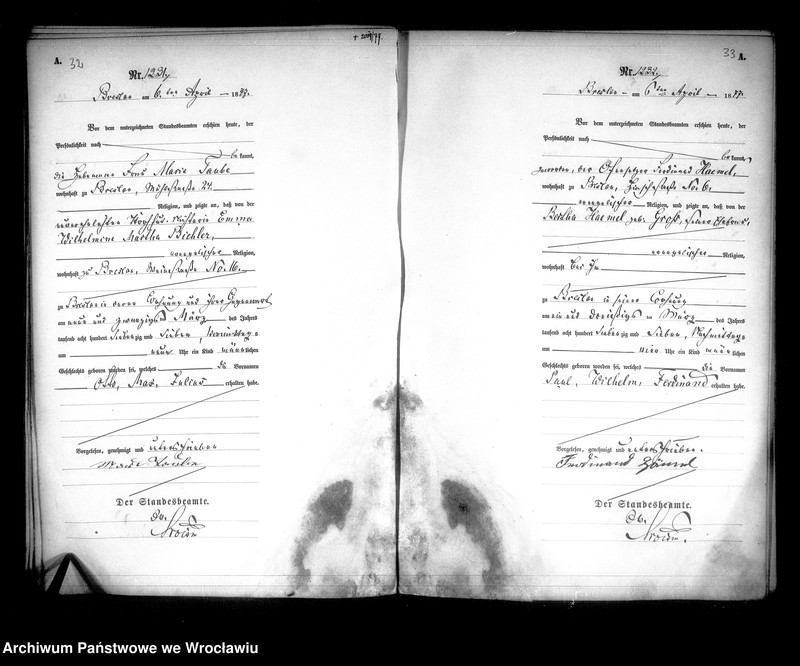 A. 32
Nr. 1231
Breslau am 6. ten April 1877.
Vor dem unterzeichneten Standesbeamten erschien heute, der
Persönlichkeit nach
bekannt,
die Hebamme Frau Marie Taube
wohnhaft zu Breslau,
Religion, und zeigte an, daß von der
Emma
Wilhelmine Martha Bichler,
evangelischer Religion,
wohnhaft zu Breslau, No. 16.
zu Breslau in deren Wohnung und ihrer Gegenwart
am neun und zwanzigsten März des Jahres
tausend acht hundert siebenzig und sieben, Vormittags
um neun Uhr ein Kind männlichen
Geschlechts geboren worden sei, welches die Vornamen
Otto, Max, Julius erhalten habe.
Vorgelesen, genehmigt und unterschrieben
Marie Taube
Der Standesbeamte.
33 A.
Nr. 1232
Breslau am 6 ten April 1877.
Vor dem unterzeichneten Standesbeamten erschien heute, der
Persönlichkeit nach
bekannt,
der Ofensetzer Ferdinand Haemel,
wohnhaft zu Breslau, No 6.
evangelischer Religion, und zeigte an, daß von der
Bertha Haemel geb. Groß, seiner Ehefrau,
evangelischer Religion,
wohnhaft bei ihm
zu Breslau in seiner Wohnung
am ein und dreißigsten März des Jahres
tausend acht hundert siebenzig und sieben, Nachmittags
um Uhr ein Kind männlichen
Geschlechts geboren worden sei, welches die Vornamen
Paul, Wilhelm, Ferdinand erhalten habe.
Vorgelesen, genehmigt und unterschrieben.
Ferdinand Hämel
Der Standesbeamte.
Archiwum Państwowe we Wrocławiu